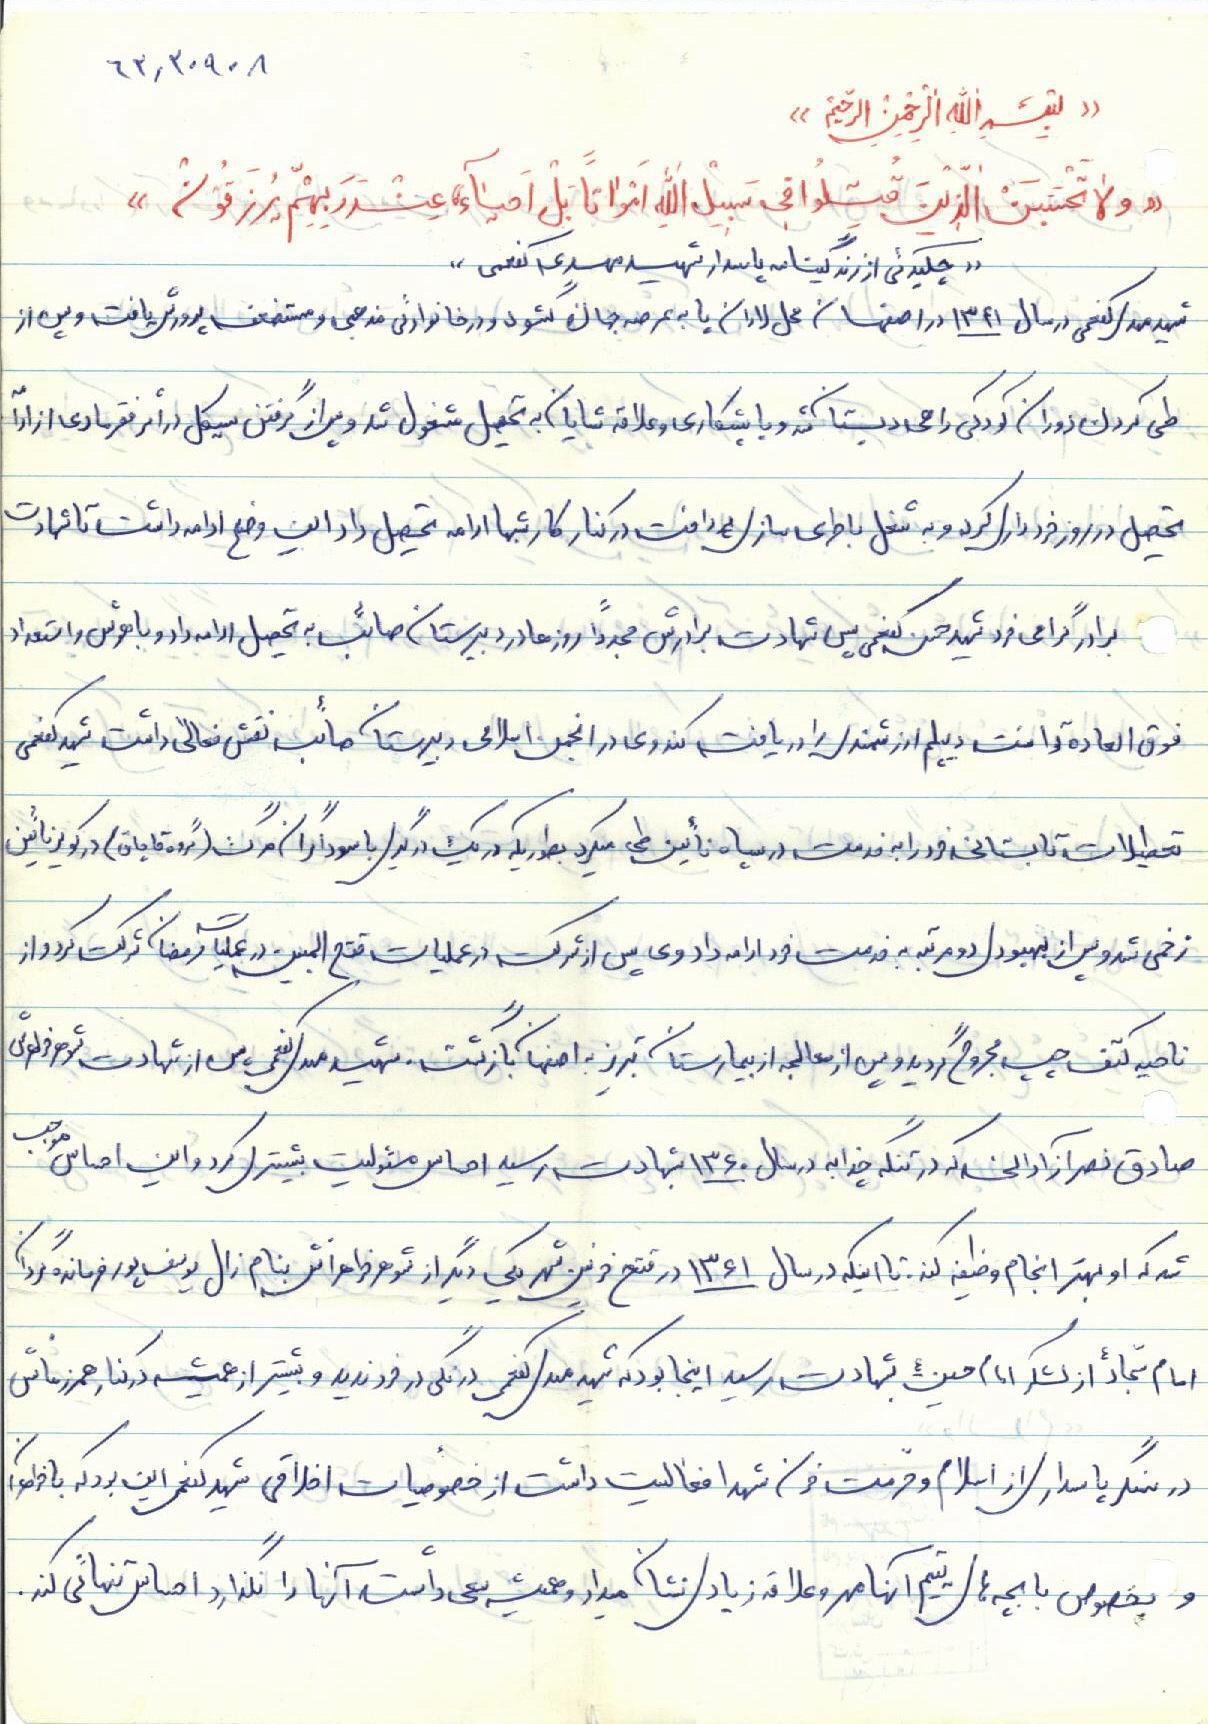 ۶۳,۳۰۹۰۸
« بِسْمِ اللهِ الرَّحْمنِ الرَّحیمْ »
« ولاٰتَحْسَبَنَّ الَّذینَ قُتِلُوا فی سَبیلِ اللهِ اَمْواتاً بَلْ اَحیاءٌ عِنْدَ رَبِهِمْ یُرْزَقُونْ »
« چکیده‌ئی از زندگینامه پاسدار شهید مهدی کفعمی »
شهید مهدی کفعمی در سال ۱۳۴۱ در اصفهان محل لادان پا به عرصه جهان گشود و در خانواده‌ئی مذهبی و مستضعف پرورش یافت و پس از
طی کردن دوران کودکی راهی دبستان شد و با پشتکاری و علاقه شایان به تحصیل مشغول شد و پس از گرفتن سیکل در أثر فقر مادی از ادامه
تحصیل در روز خودداری کرد و به شغل باطری سازی پرداخت در کنار کار شبها ادامه تحصیل داد این وضع ادامه داشت تا شهادت
برادر گرامی خود شهید حسن کفعمی پس شهادت برادرش مجدداً روزها در دبیرستان صائب به تحصیل ادامه داد و با هوش و استعداد
فوق العاده توانست دیپلم ارزشمندی را دریافت کند وی در انجمن اسلامی دبیرستان صائب نقش فعالی داشت شهید کفعمی
تعطیلات تابستانی خود را به خدمت در سپاه نائین طی میکرد بطوریکه در یک درگیری با سوداگران مرگ (گروه قاچاق) در کویر نائین
زخمی شد و پس از بهبودی دو مرتبه به خدمت خود ادامه داد وی پس از شرکت در عملیات فتح المبین در عملیات رمضان شرکت کرد و از
ناحیه کتف چپ مجروح گردید و پس از معالجه از بیمارستان تبریز به اصفهان بازگشت. شهید مهدی کفعمی پس از شهادت شوهر خواهرش
صادق نصر آزادانی که در تنگه چزابه در سال ۱۳۶۰ بشهادت رسید احساس مسئولیت بیشتری کرد و این احساس موجب
شد که او بهتر انجام وظیفه کند. تا اینکه در سال ۱۳۶۱ در فتح خونین شهر یکی دیگر از شوهر خواهرانش بنام زال یوسف پور فرمانده گردان
امام سجادؑ از لشکر امام حسینؑ بشهادت رسید اینجا بود که شهید مهدی کفعمی درنگی در خود ندید و بیشتر از همیشه در کنار همرزمانش
در سنگر پاسداری از اسلام و حرمت خون شهدا فعالیت داشت از خصوصیات اخلاقی شهید کفعمی این بود که با خواهران
و بخصوص با بچه های یتیم آنها مهر و علاقه زیادی نشان میداد و همیشه سعی داشت آنها را نگذارد احساس تنهائی کند.